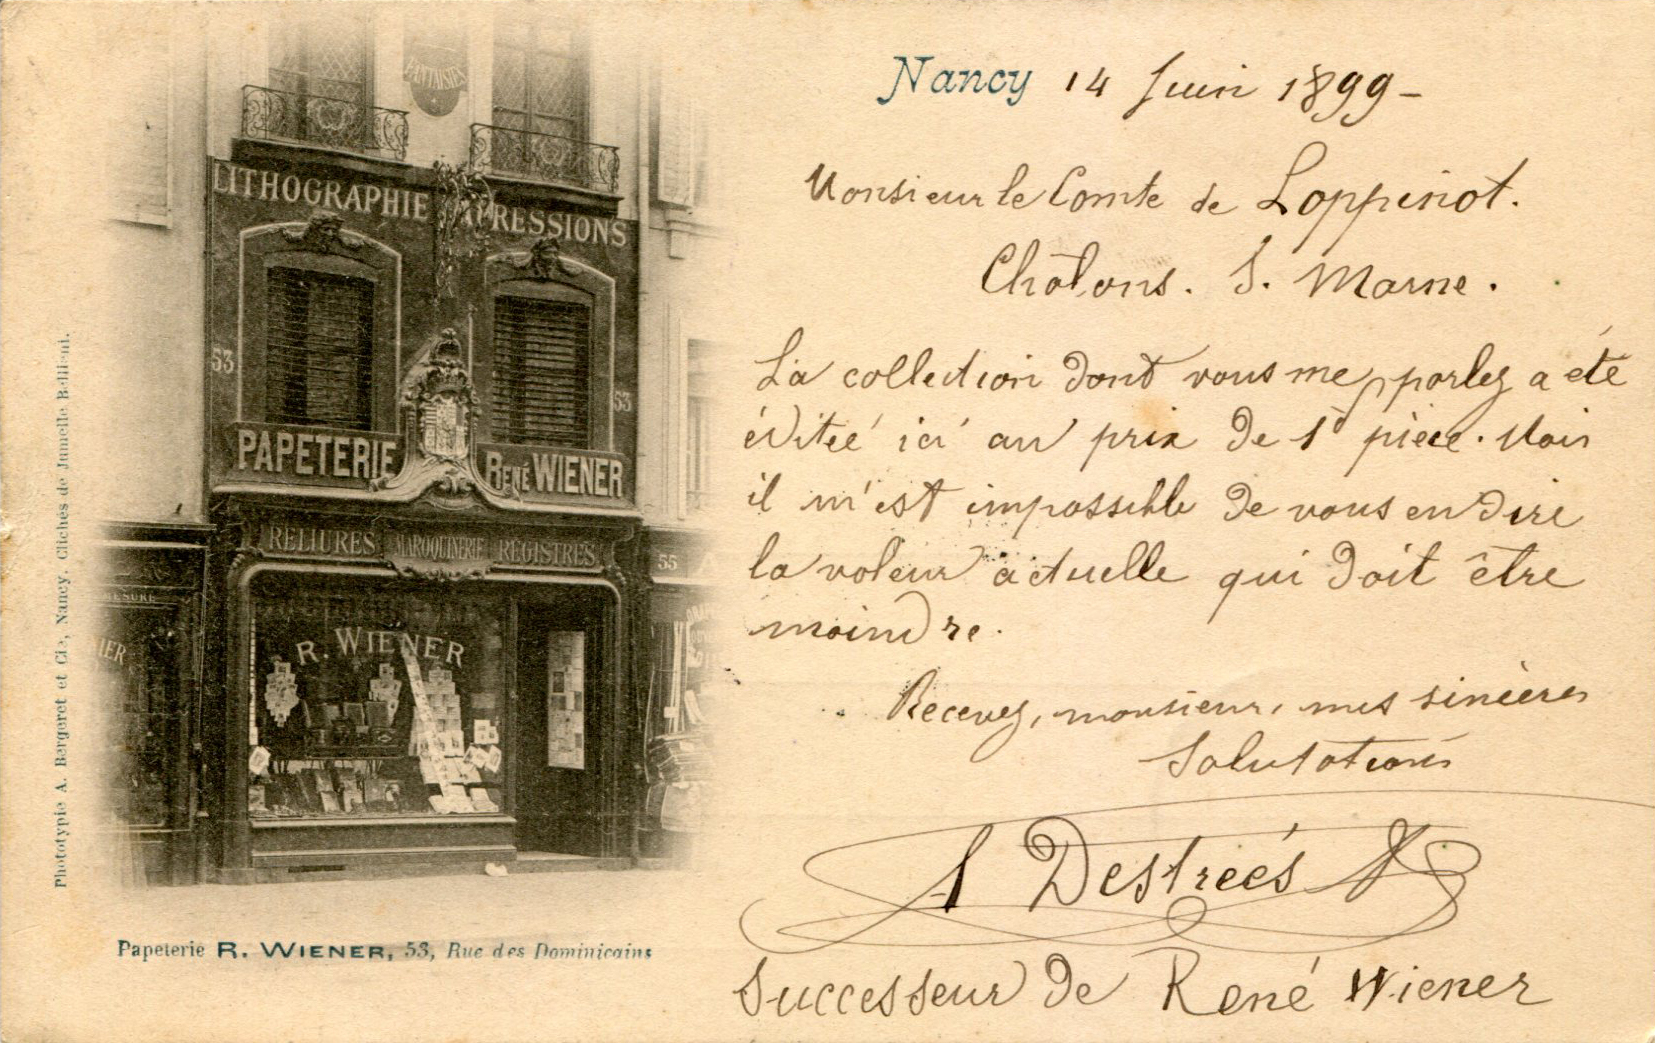 FANTAISIES
LITHOGRAPHIE IMPRESSIONS
53
53
PAPETERIE
RENÉ WIENER
RELIURES MAROQUINERIE REGISTRES
55
MESURE
IER
R. WIENER
Phototypie A. Bergeret et Cie, Nancy. Clichés de Jumelle Bellieni.
Papeterie R. WIENER, 53, Rue des Dominicains
Nancy 14 Juin 1899 -
Monsieur le Comte de Loppinot.
Châlons. S. Marne.
La collection dont vous me parlez a été
éditée ici au prix de 1f pièce. Mais
il m'est impossible de vous en dire
la valeur actuelle qui doit être
moindre.
Recevez, monsieur, mes sincères
Salutations
A Destreés
Successeur de René Wiener